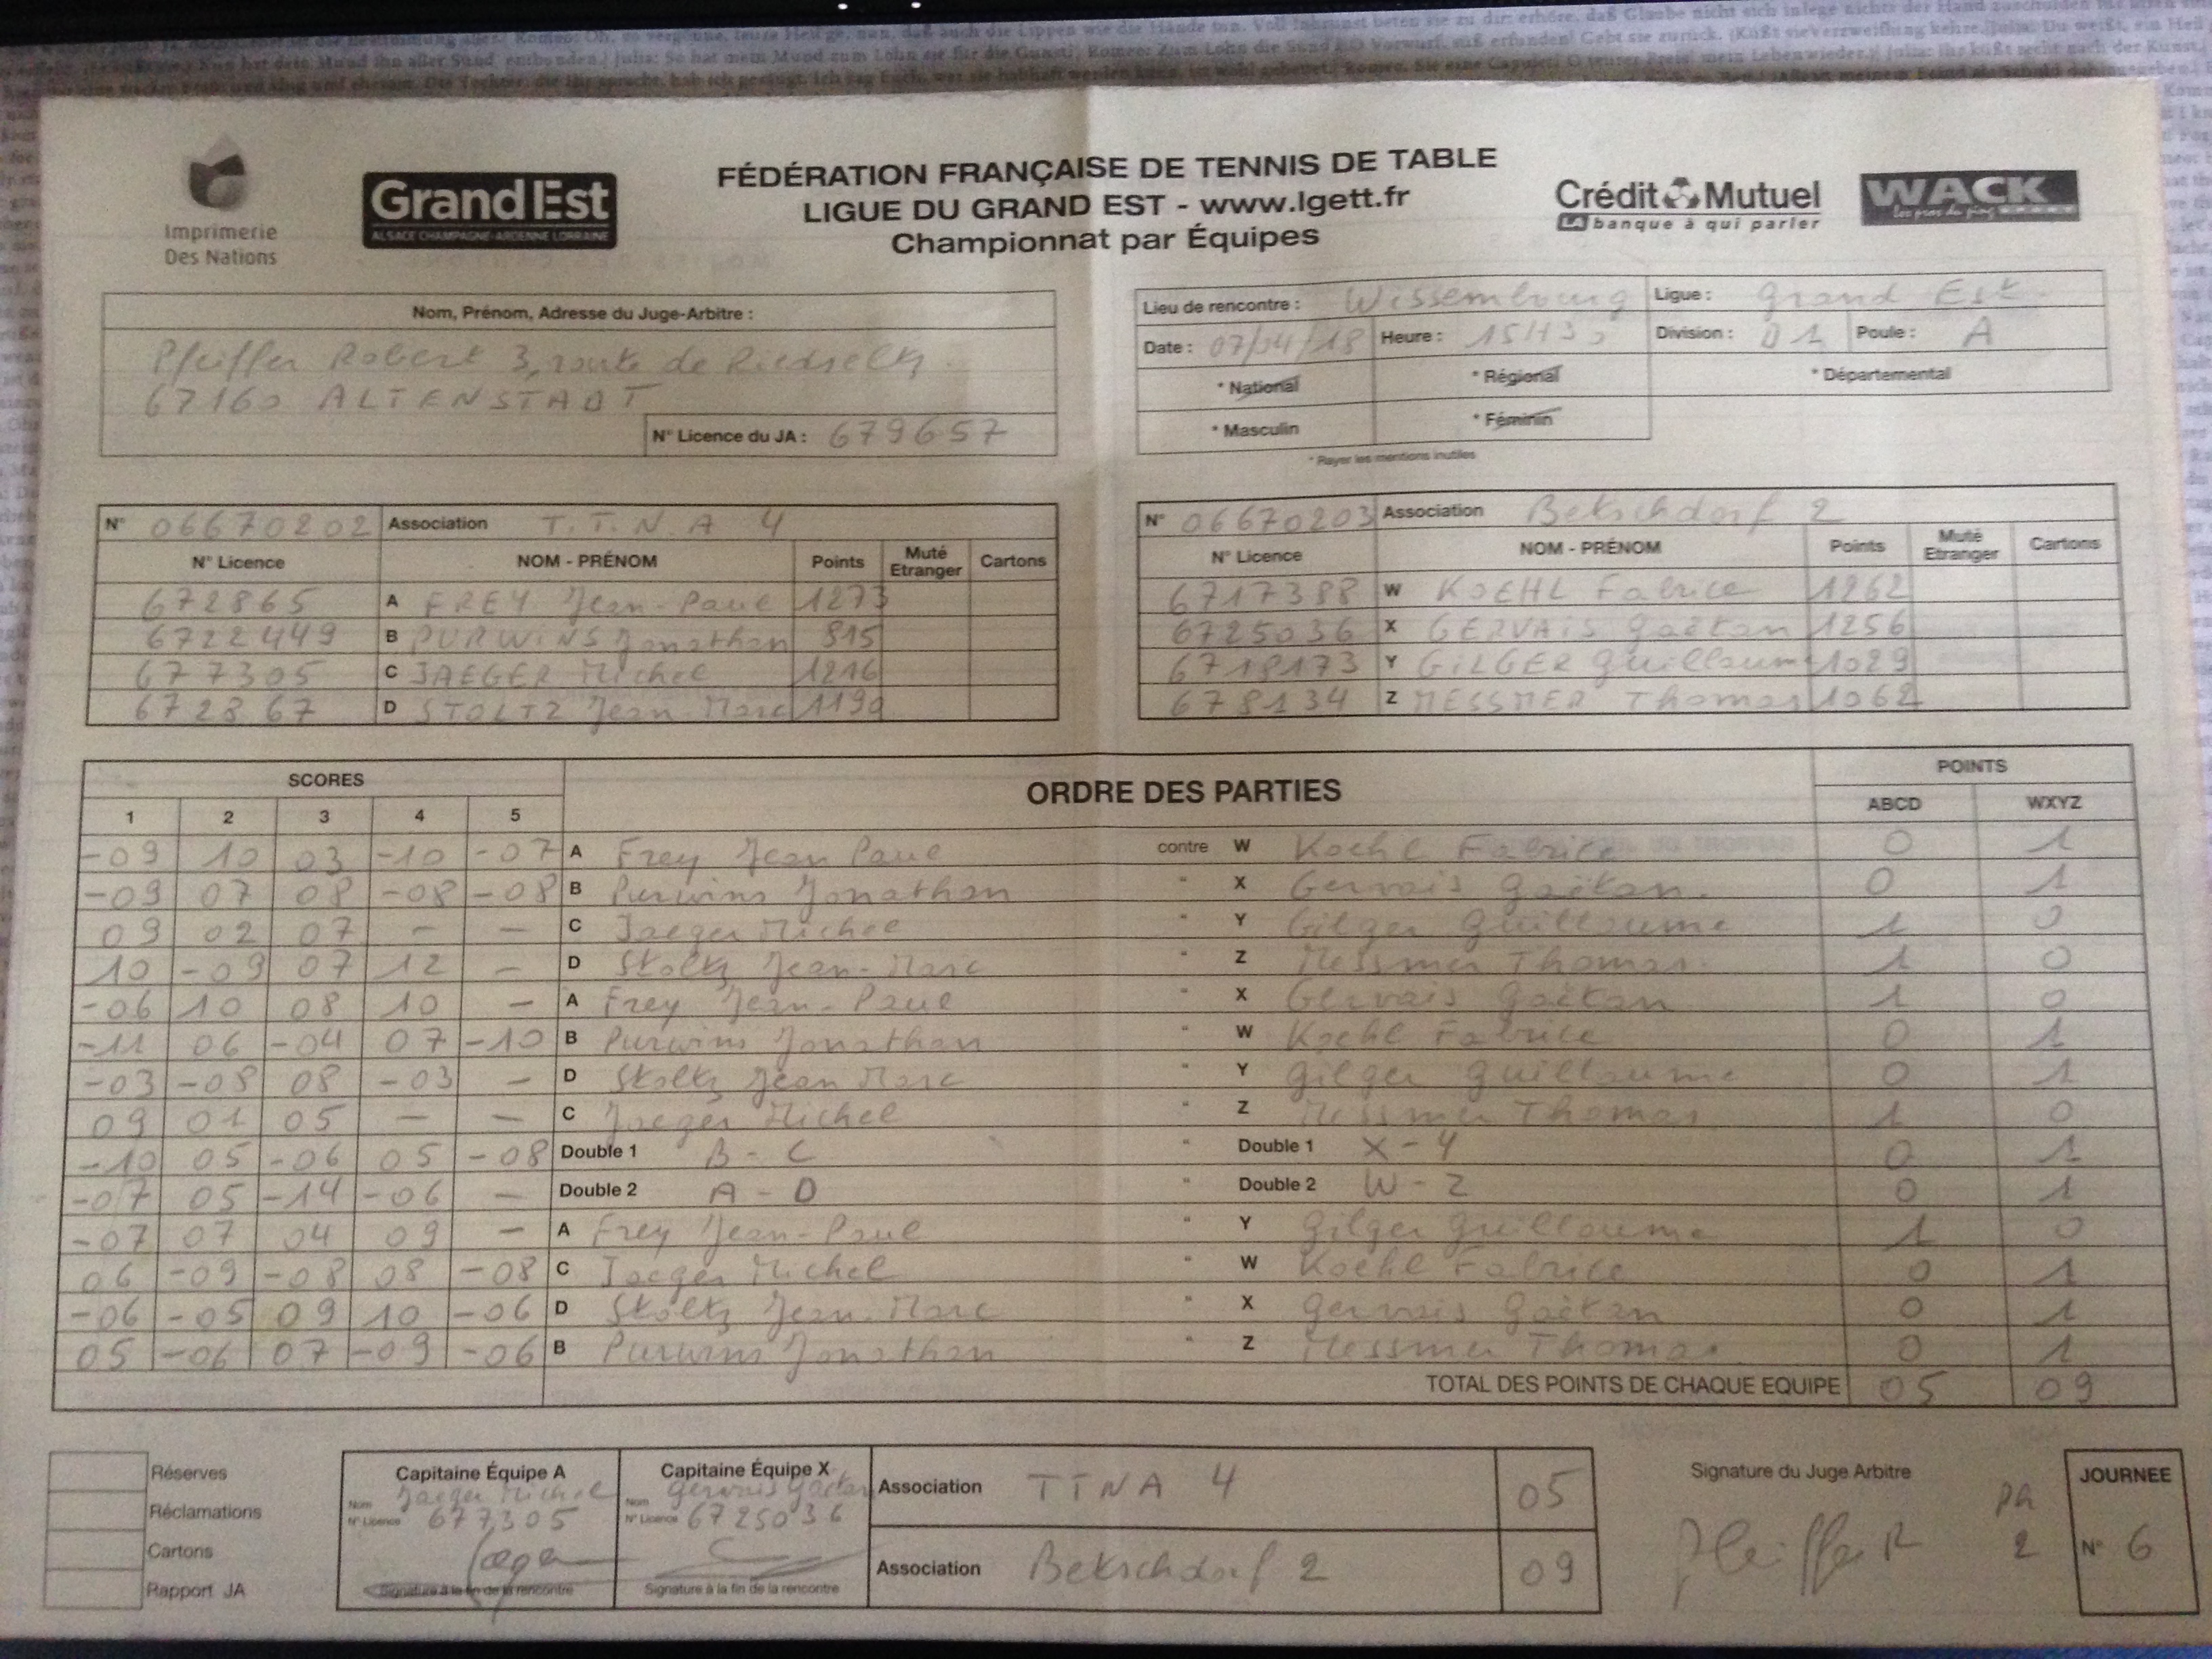 Imprimerie
Des Nations
GrandEst
ALSACE CHAMPAGNE-ARDENNE LORRAINE
FÉDÉRATION FRANÇAISE DE TENNIS DE TABLE
LIGUE DU GRAND EST - www.lgett.fr
Championnat par Équipes
Crédit Mutuel
LA banque à qui parler
WACK
les pros du ping
Nom, Prénom, Adresse du Juge-Arbitre :
Pfeiffer Robert 3, route de Riedseltz
67160 ALTENSTADT
N° Licence du JA : 679657
Lieu de rencontre : Wissembourg Ligue : Grand Est
Date : 07/04/18 Heure : 15H30 Division : D1 Poule : A
* National * Régional * Départemental
* Masculin * Féminin
* Rayer les mentions inutiles
N° 06670202 Association T.T.N A 4
N° Licence NOM - PRÉNOM Points Muté Etranger Cartons
672865 A FREY Jean-Paul 1273
6722449 B PURWINS Jonathan 815
677305 C JAEGER Michel 1216
672867 D STOLTZ Jean-Marc 1190
N° 06670203 Association Betschdorf 2
N° Licence NOM - PRÉNOM Points Muté Etranger Cartons
6717388 W KOEHL Fabrice 1262
6725036 X GERVAIS Gaëtan 1256
6718173 Y GILGER Guillaume 1029
678134 Z MESSMER Thomas 1062
SCORES ORDRE DES PARTIES POINTS
1 2 3 4 5 ABCD WXYZ
-09 10 03 -10 -07 A Frey Jean Paul contre W Koehl Fabrice 0 1
-09 07 08 -08 -08 B Purwins Jonathan " X Gervais Gaëtan. 0 1
09 02 07 - - C Jaeger Michel " Y Gilger Guillaume 1 0
10 -09 07 12 - D Stoltz Jean-Marc " Z Messmer Thomas. 1 0
-06 10 08 10 - A Frey Jean-Paul " X Gervais Gaëtan 1 0
-11 06 -04 07 -10 B Purwins Jonathan " W Koehl Fabrice 0 1
-03 -08 08 -03 - D Stoltz Jean Marc " Y Gilger Guillaume 0 1
09 01 05 - - C Jaeger Michel " Z Messmer Thomas 1 0
-10 05 -06 05 -08 Double 1 B - C " Double 1 X - Y 0 1
-07 05 -14 -06 - Double 2 A - D " Double 2 W - Z 0 1
-07 07 04 09 - A Frey Jean-Paul " Y Gilger Guillaume 1 0
06 -09 -08 08 -08 C Jaeger Michel " W Koehl Fabrice 0 1
-06 -05 09 10 -06 D Stoltz Jean-Marc " X Gervais Gaëtan 0 1
05 -06 07 -09 -06 B Purwins Jonathan " Z Messmer Thomas 0 1
TOTAL DES POINTS DE CHAQUE EQUIPE 05 09
Réserves
Réclamations
Cartons
Rapport JA
Capitaine Équipe A
Nom Jaeger Michel
N° Licence 677305
Jaeger
Signature à la fin de la rencontre
Capitaine Équipe X
Nom Gervais Gaëtan
N° Licence 6725036
Signature à la fin de la rencontre
Association TTNA 4 05
Association Betschdorf 2 09
Signature du Juge Arbitre
Pfeiffer R
PH
2
JOURNEE
N° 6